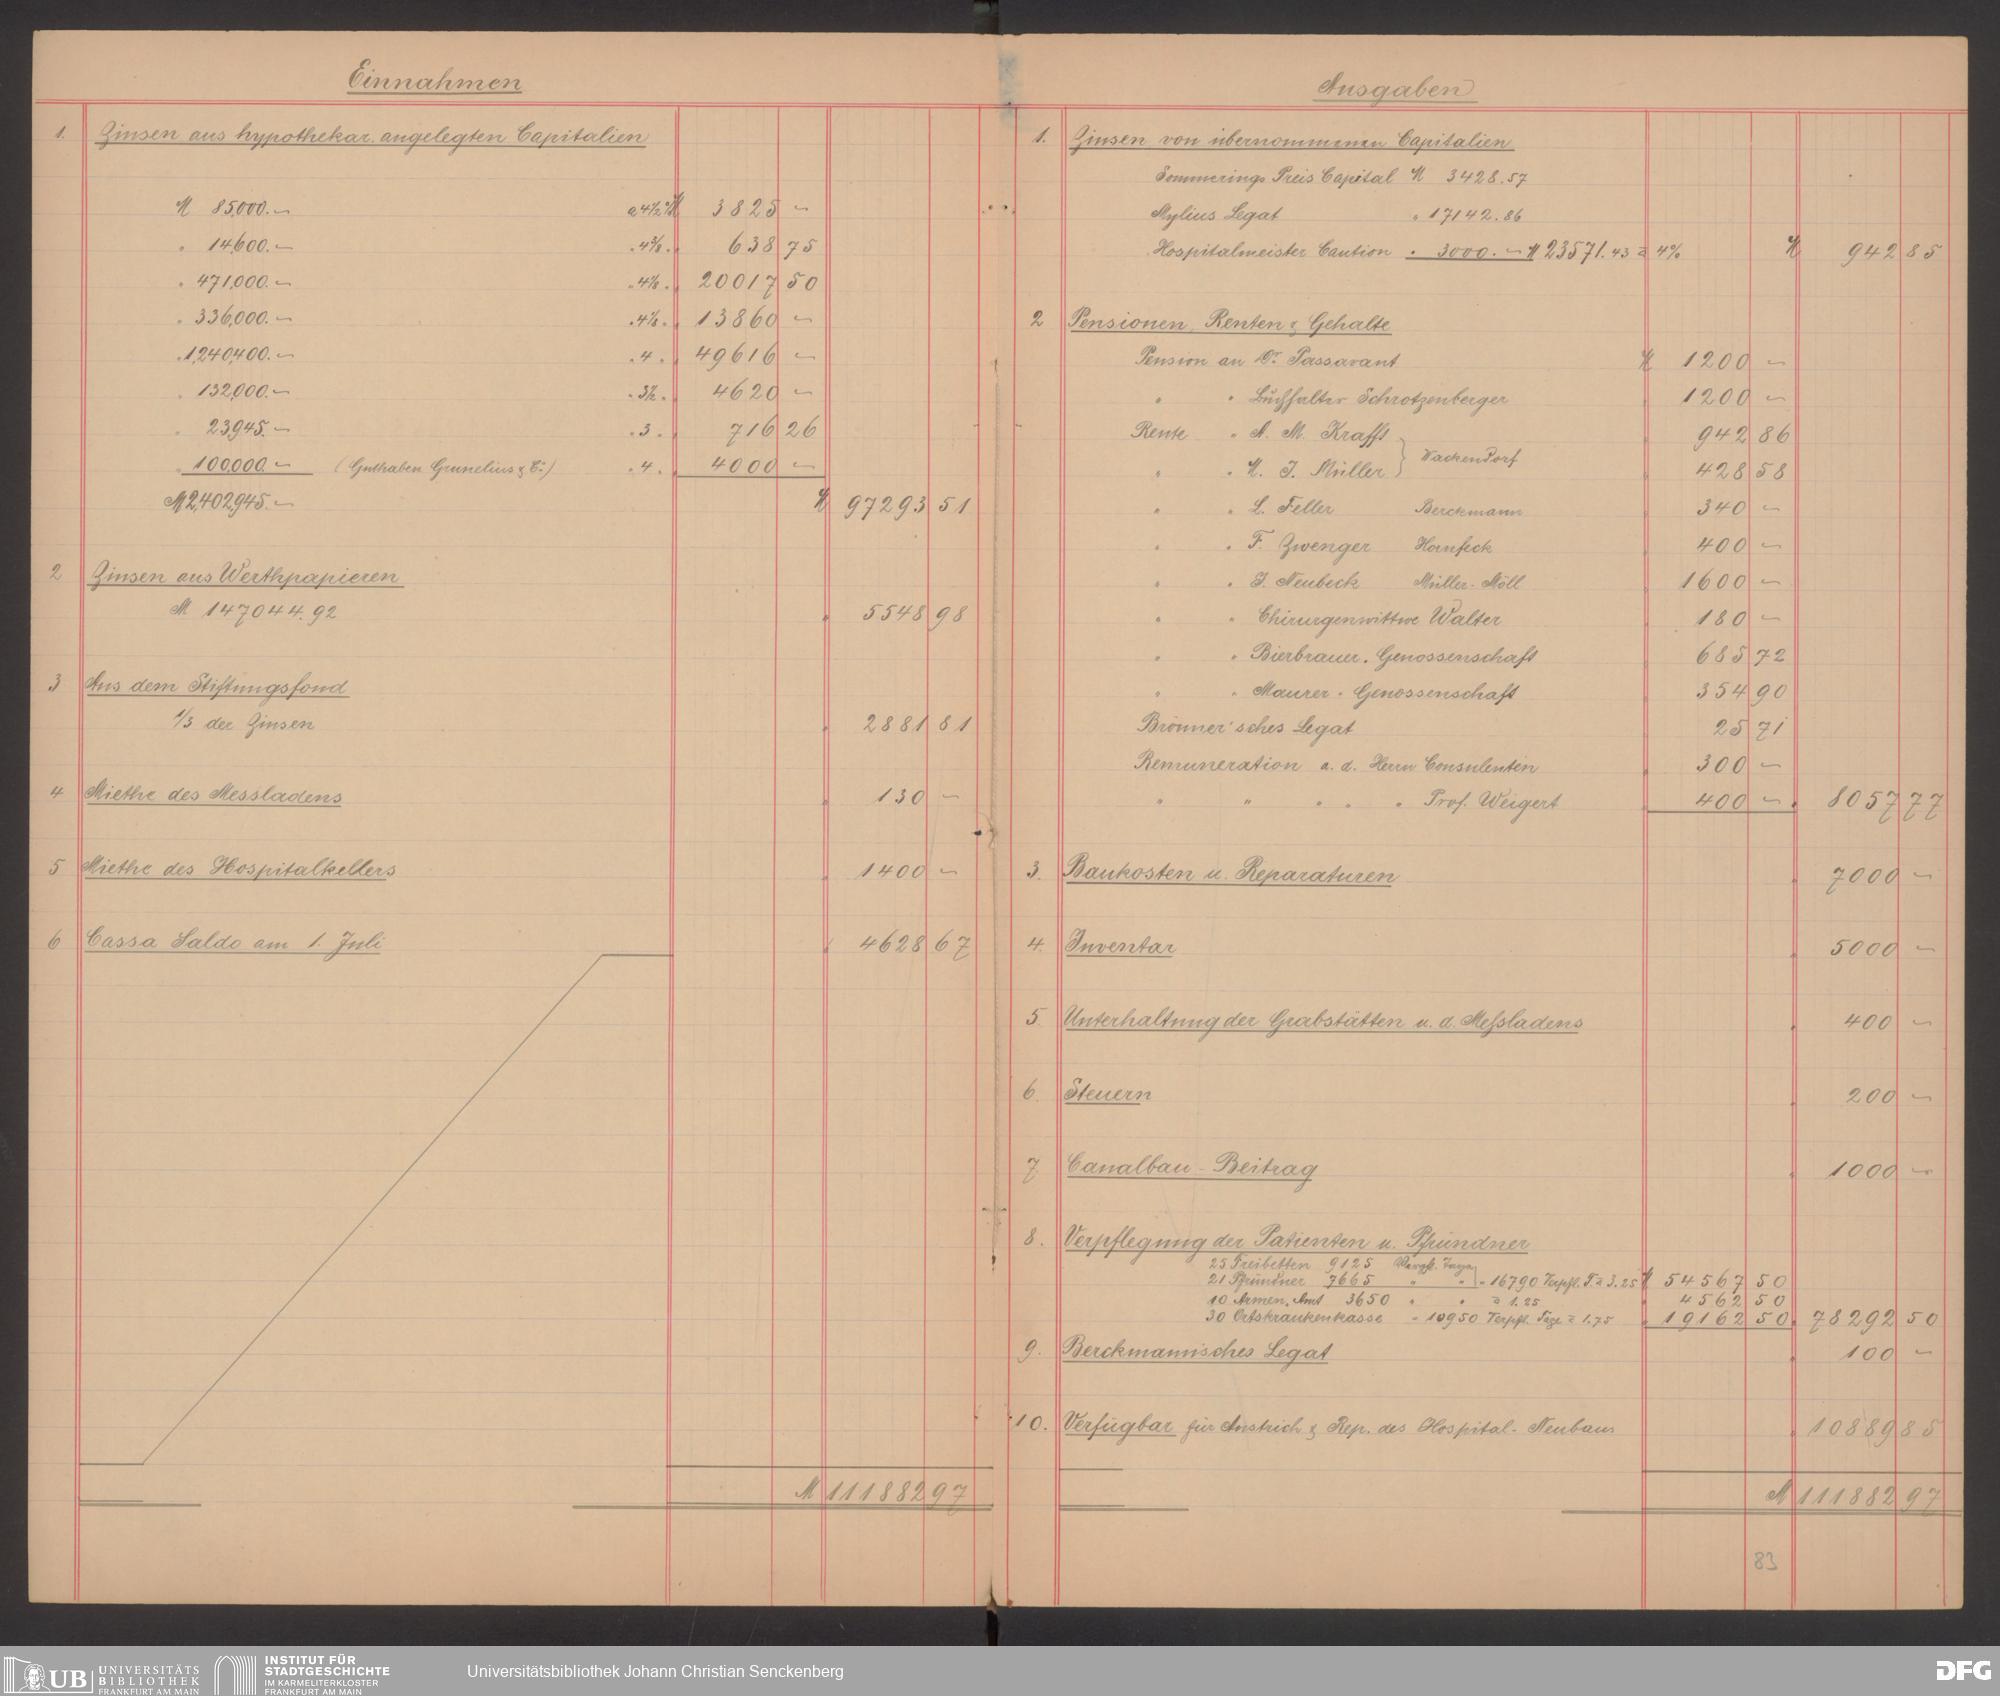 Einnahmen
1. Zinsen aus hypothekar. angelegten Capitalien
M 85,000.— a 4½ % M 3825 —
" 14,600.— " 4⅜ " " 638 75
" 471,000.— " 4¼ " " 20017 50
" 336,000.— " 4⅛ " " 13860 —
" 1,240,400.— " 4 " " 49616 —
" 132,000.— " 3½ " " 4620 —
" 23,945.— " 3 " " 716 26
" 100,000.— (Guthaben Grunelius & Co) " 4 " " 4000 —
M 2,402,945.— M 97293 51
2 Zinsen aus Werthpapieren
M 147044.92 " 5548 98
3 Aus dem Stiftungsfond
1/3 der Zinsen " 2881 81
4 Miethe des Messladens " 130 —
5 Miethe des Hospitalkellers " 1400 —
6 Cassa Saldo am 1. Juli " 4628 67
M 111882 97
Ausgaben
1. Zinsen von übernommenen Capitalien
Sommerings Preis Capital M 3428.57
Mylius Legat " 17142.86
Hospitalmeister Caution " 3000.— M 23571.43 à 4% M 942 85
2 Pensionen, Renten & Gehalte
Pension an Dr. Passavant M 1200 —
" " Buchhalter Schrotzenberger 1200 —
Rente " A. M. Krafft 942 86
Wackendorf
" " M. J. Müller 428 58
" " L. Feller Berckmann 340 —
" " F. Zwenger Hornfeck 400 —
" " J. Neubeck Müller-Möll 1600 —
" " Chirurgenwittwe Walter 180 —
" " Bierbrauer-Genossenschaft 685 72
" " Maurer-Genossenschaft 354 90
Brönner'sches Legat 25 71
Remuneration a. d. Herrn Consulenten 300 —
" " " " " Prof. Weigert 400 — " 8057 77
3. Baukosten u. Reparaturen " 7000 —
4. Inventar " 5000 —
5. Unterhaltung der Grabstätten u. d. Meßladens " 400 —
6. Steuern " 200 —
7. Canalbau-Beitrag " 1000 —
8. Verpflegung der Patienten u. Pfründner
25 Freibetten 9125 Verpfl. Tage
21 Pfründner 7665 " " = 16790 Verpfl. T. à 3.25 M 54567 50
10 Armen-Amt 3650 " " à 1.25 " 4562 50
30 Ortskrankenkasse = 10950 Verpfl. Tage à 1.75 " 19162 50 " 78292 50
9. Berckmannisches Legat " 100 —
10. Verfügbar für Anstrich & Rep. des Hospital-Neubaus " 10889 85
M 111882 97
83
UB UNIVERSITÄTS
BIBLIOTHEK
FRANKFURT AM MAIN
INSTITUT FÜR
STADTGESCHICHTE
IM KARMELITERKLOSTER
FRANKFURT AM MAIN
Universitätsbibliothek Johann Christian Senckenberg
DFG